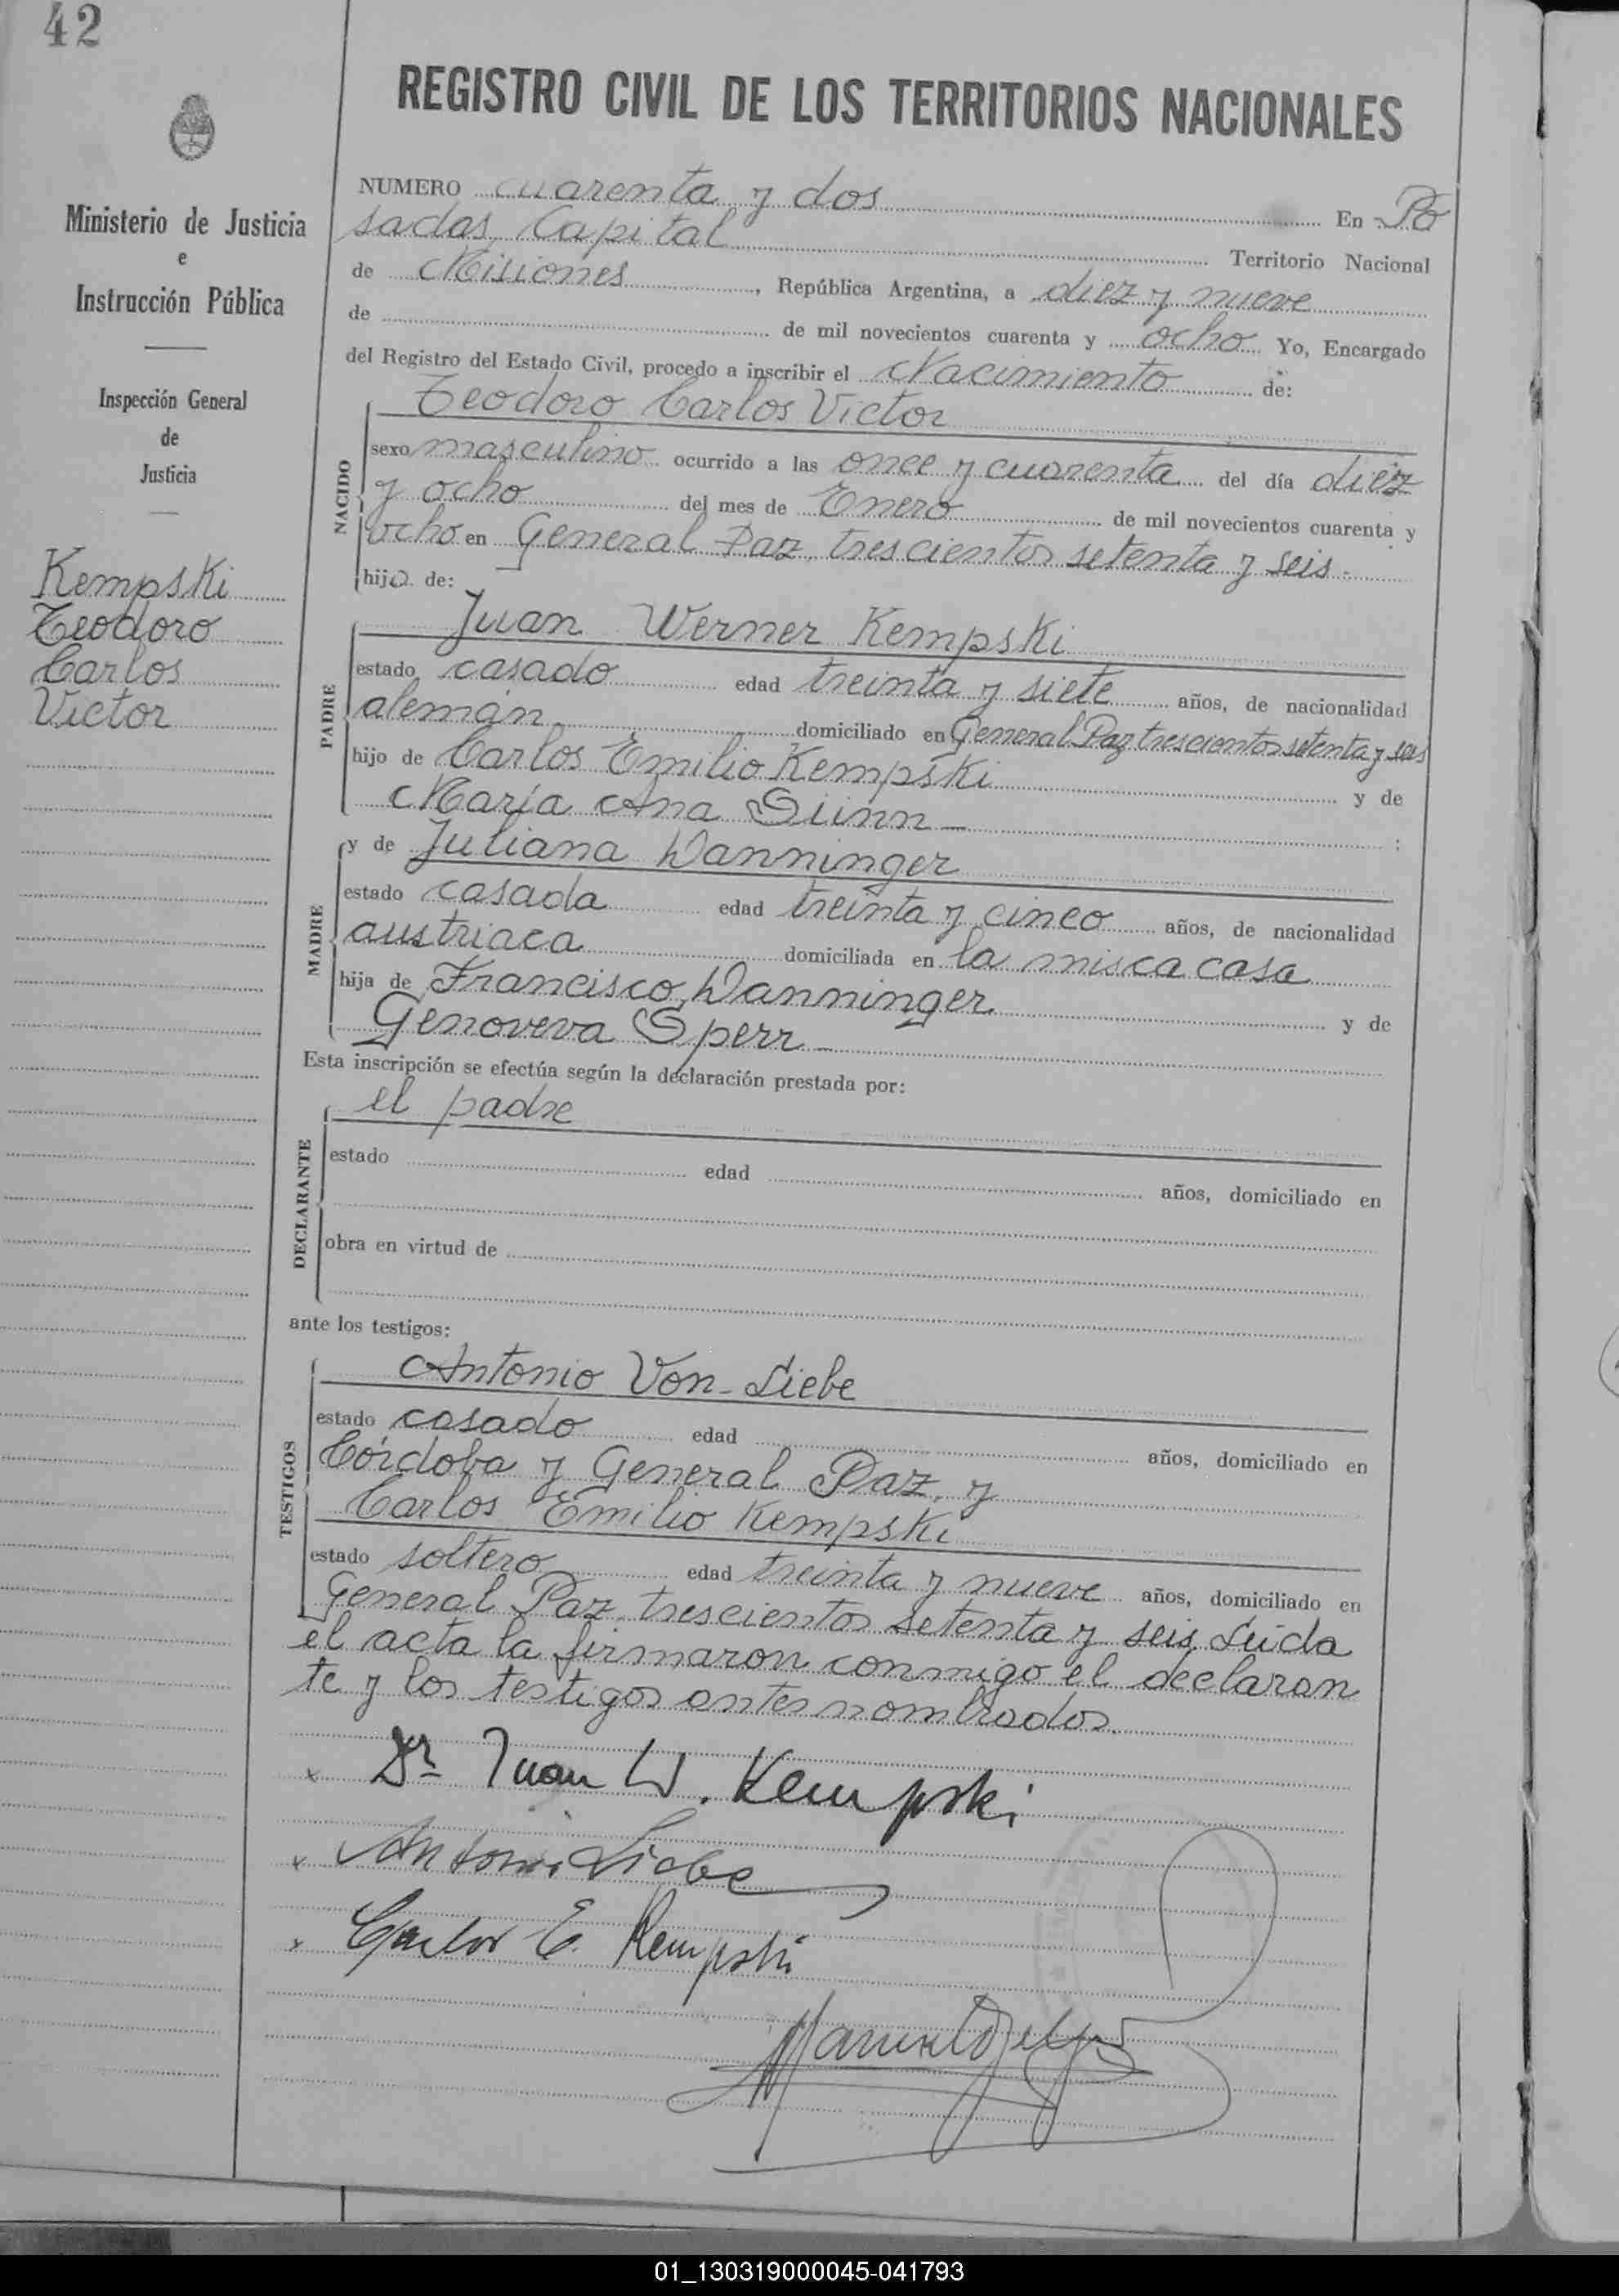 42
REGISTRO CIVIL DE LOS TERRITORIOS NACIONALES
Ministerio de Justicia
e
Instrucción Pública
Inspección General
de
Justicia
Kempski
Teodoro
Carlos
Victor
NUMERO cuarenta y dos En Po
sadas, Capital Territorio Nacional
de Misiones, República Argentina, a diez y nueve
de de mil novecientos cuarenta y ocho Yo, Encargado
del Registro del Estado Civil, procedo a inscribir el Nacimiento de:
NACIDO
Teodoro Carlos Victor
sexo masculino ocurrido a las once y cuarenta del día diez
y ocho del mes de Enero de mil novecientos cuarenta y
ocho en General Paz, trescientos setenta y seis.
hijo de:
PADRE
Juan Werner Kempski
estado casado edad treinta y siete años, de nacionalidad
alemán domiciliado en General Paz trescientos setenta y seis
hijo de Carlos Emilio Kempski y de
María Ana :
MADRE
y de Juliana Wanninger
estado casada edad treinta y cinco años, de nacionalidad
austriaca domiciliada en la misca casa
hija de Francisco Wanninger y de
Genoveva Sperr
Esta inscripción se efectúa según la declaración prestada por:
DECLARANTE
el padre
estado edad años, domiciliado en
obra en virtud de
ante los testigos:
TESTIGOS
Antonio Von-Liebe
estado casado edad años, domiciliado en
Córdoba y General Paz, y
Carlos Emilio Kempski
estado soltero edad treinta y nueve años, domiciliado en
General Paz, trescientos setenta y seis. Leida
el acta la firmaron conmigo el declaran
te y los testigos antes nombrados.
x Dr Juan W. Kempski
x Antonio Liebe
x Carlos E. Kempski
01_130319000045-041793